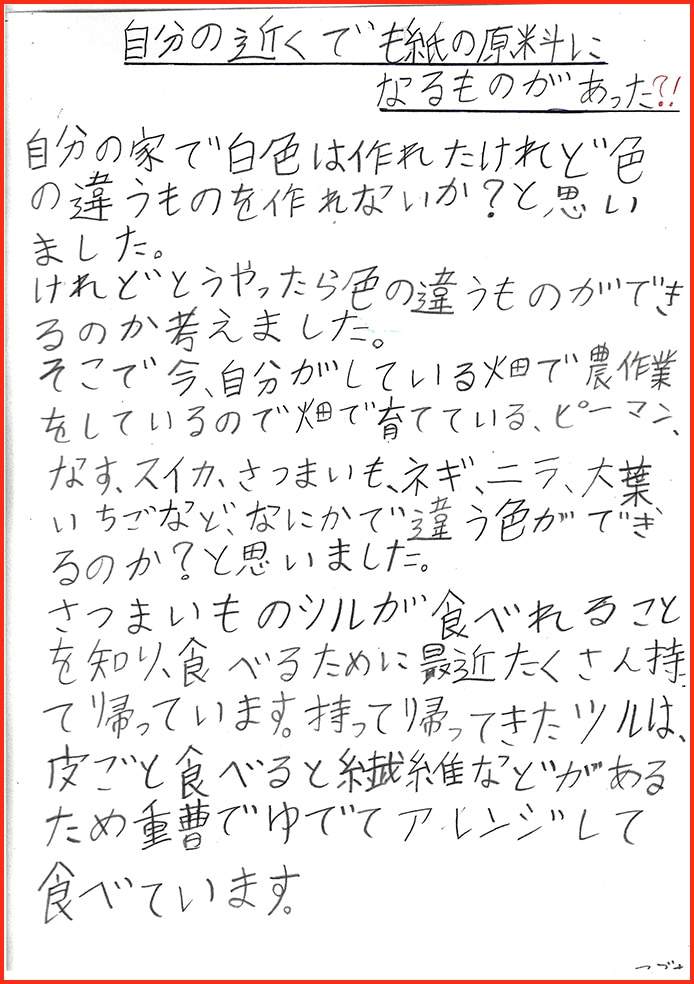 自分の近くでも紙の原料に
なるものがあった?!
自分の家で白色は作れたけれど色
の違うものを作れないか?と思い
ました。
けれどどうやったら色の違うものができ
るのか考えました。
そこで今、自分がしている畑で農作業
をしているので畑で育てている、ピーマン、
なす、スイカ、さつまいも、ネギ、ニラ、大葉
いちごなど、なにかで違う色ができ
るのか?と思いました。
さつまいものツルが食べれること
を知り、食べるために最近たくさん持
て帰っています。持って帰ってきたツルは、
皮ごと食べると繊維などがある
ため重曹でゆでてアレンジして
食べています。
つづき